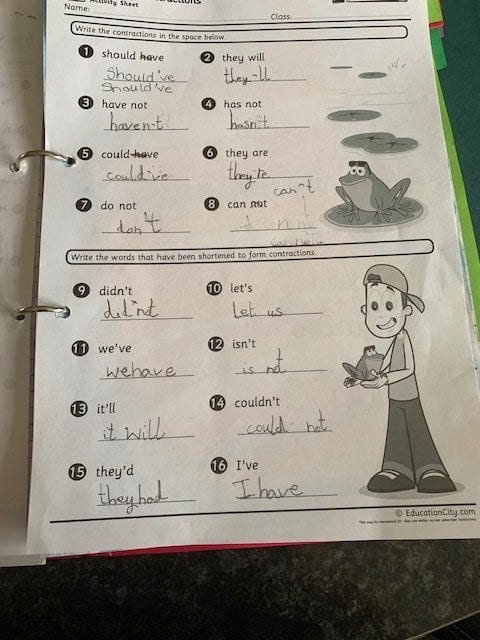 Activity Sheet
Name:
Class:
Write the contractions in the space below.
1 should have
Should've
Should've
2 they will
they-ll
3 have not
haven-t
4 has not
hasn't
5 could have
could've
6 they are
they're
7 do not
don't
8 can not
can't
Write the words that have been shortened to form contractions.
9 didn't
did not
10 let's
Let us
11 we've
we have
12 isn't
is not
13 it'll
it will
14 couldn't
could not
15 they'd
they had
16 I've
I have
© EducationCity.com
This may be reproduced for class use within current subscriber institutions.